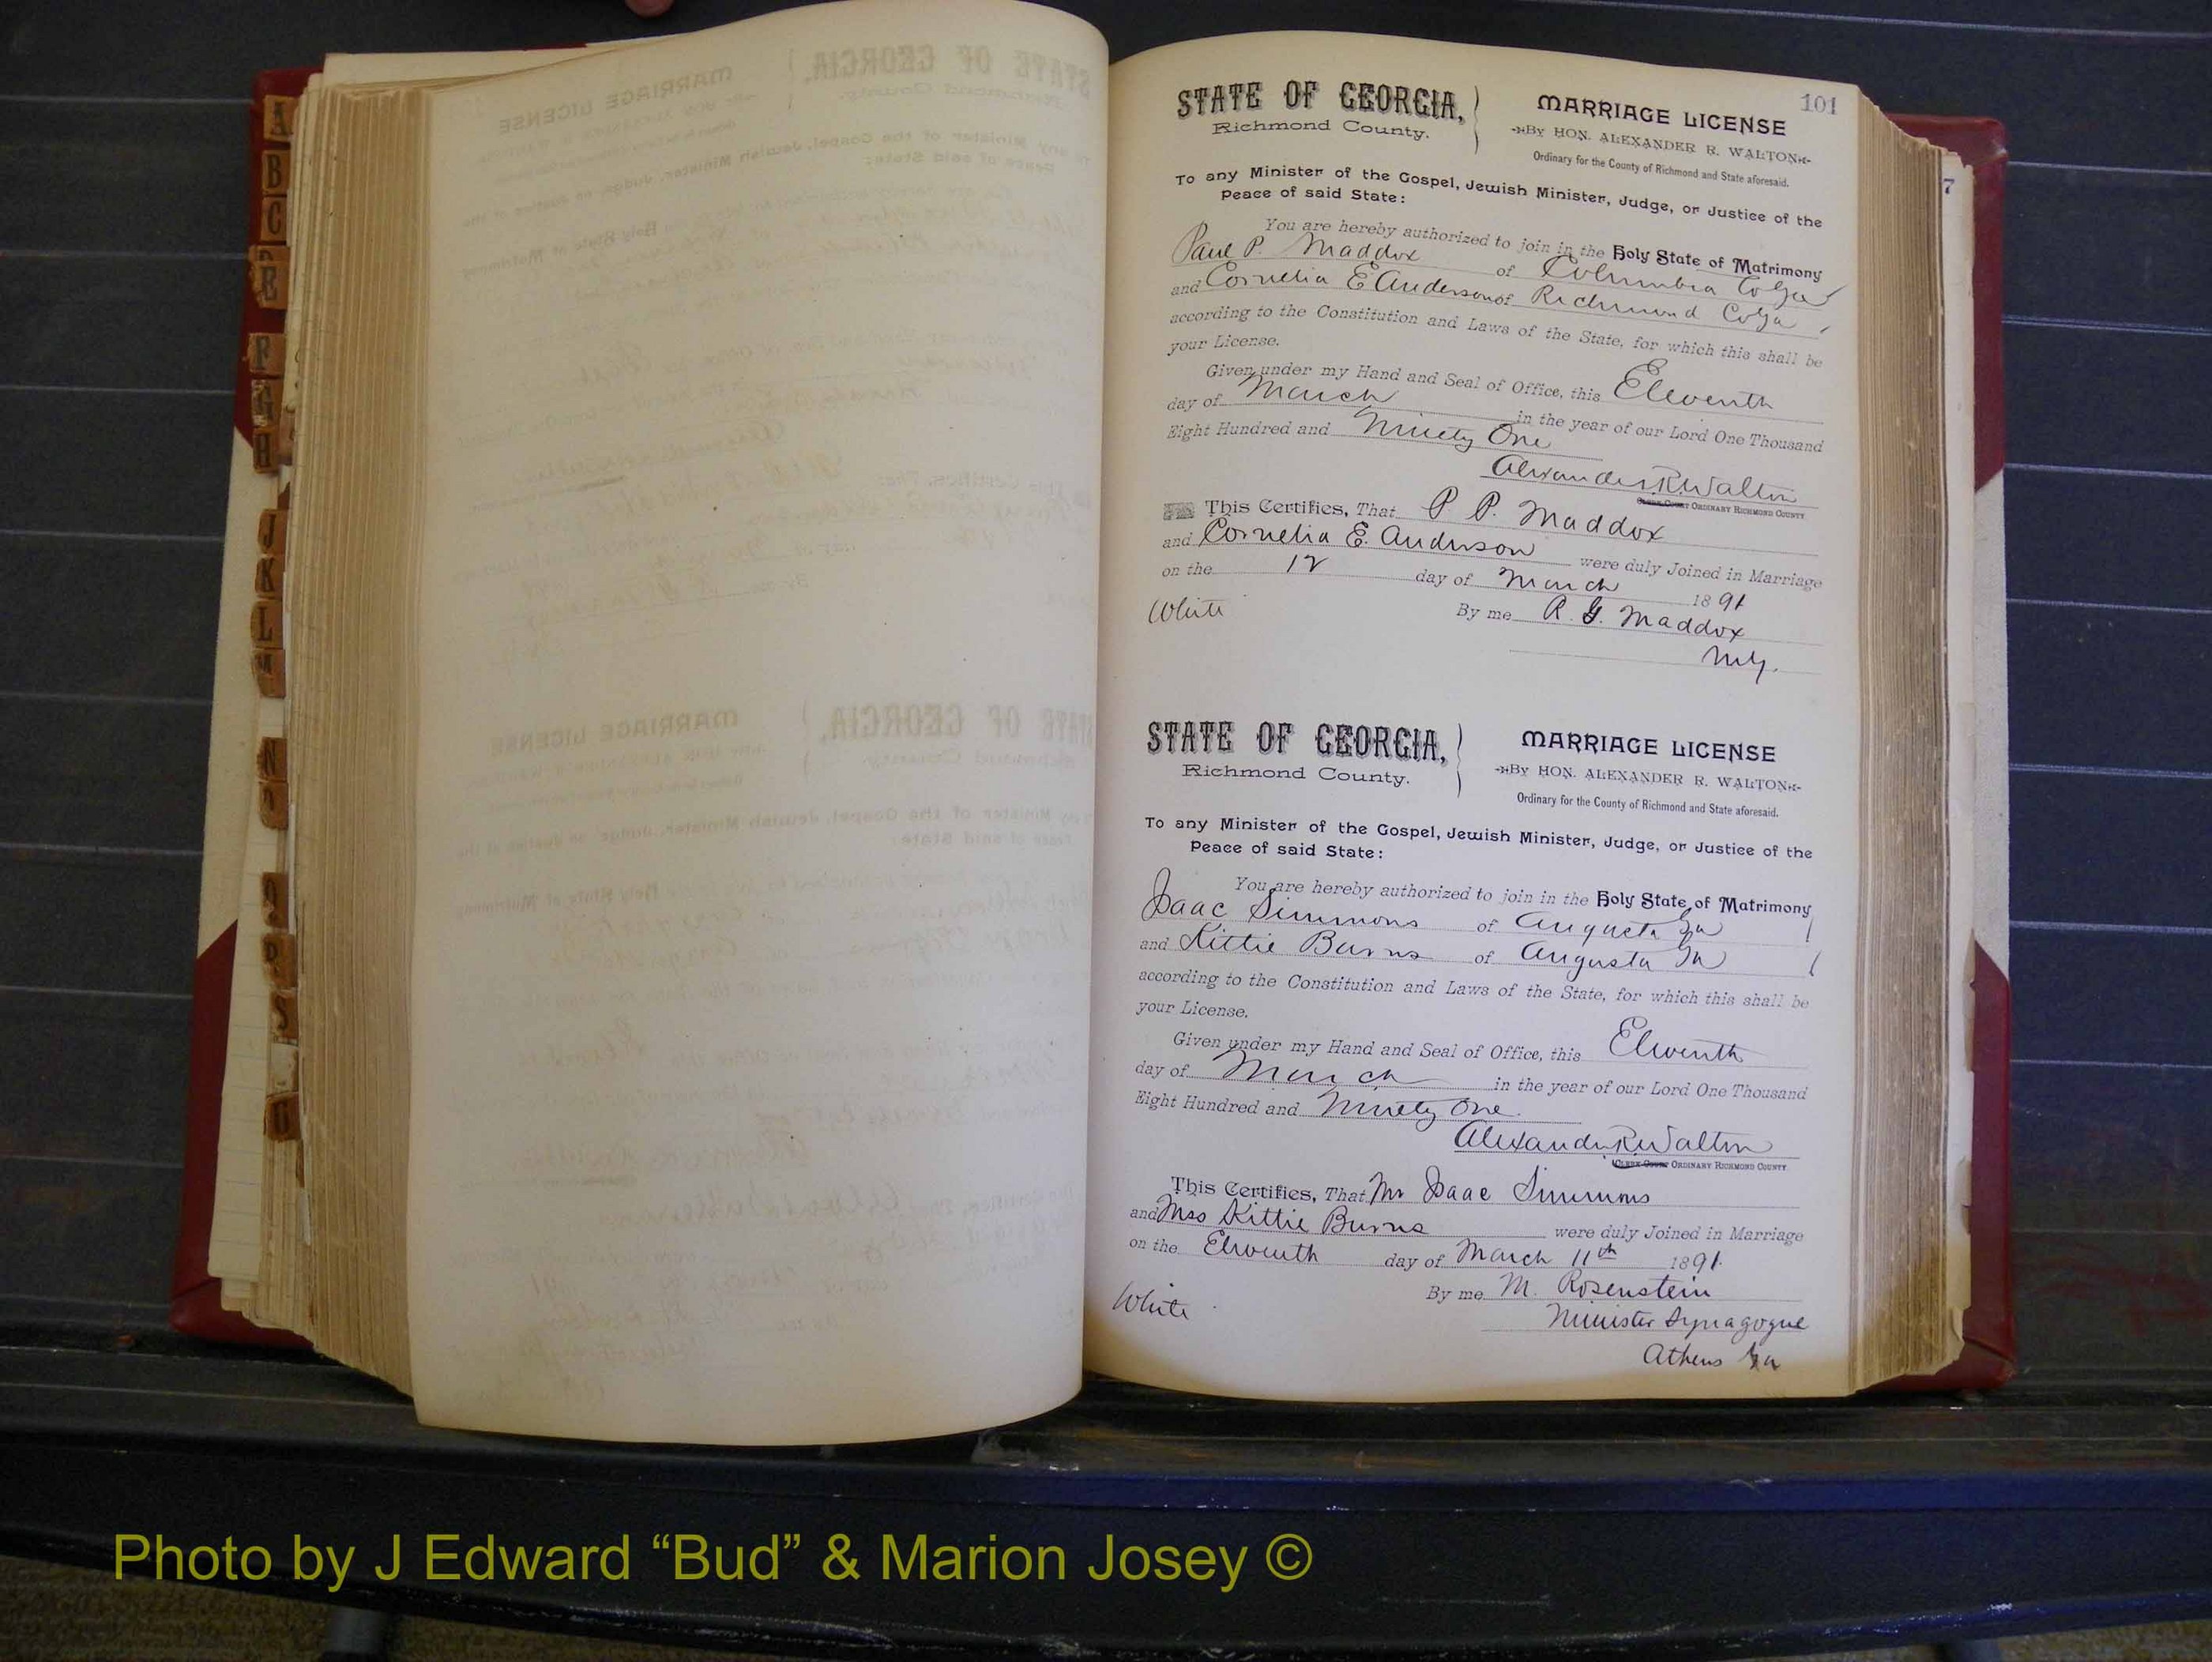 101
STATE OF GEORGIA,
Richmond County.
MARRIAGE LICENSE
By HON. ALEXANDER R. WALTON
Ordinary for the County of Richmond and State aforesaid.
To any Minister of the Gospel, Jewish Minister, Judge, or Justice of the
Peace of said State:
You are hereby authorized to join in the Holy State of Matrimony
Paul P. Maddox of Columbia Co Ga
and Cornelia E Anderson of Richmond Co Ga
according to the Constitution and Laws of the State, for which this shall be
your License.
Given under my Hand and Seal of Office, this Eleventh
day of March in the year of our Lord One Thousand
Eight Hundred and Ninety One
Alexander R Walton
CLERK COURT ORDINARY RICHMOND COUNTY
This Certifies, That P. P. Maddox
and Cornelia E. Anderson were duly Joined in Marriage
on the 12 day of March 1891
White
By me R. G. Maddox
M.G.
STATE OF GEORGIA,
Richmond County.
MARRIAGE LICENSE
By HON. ALEXANDER R. WALTON
Ordinary for the County of Richmond and State aforesaid.
To any Minister of the Gospel, Jewish Minister, Judge, or Justice of the
Peace of said State:
You are hereby authorized to join in the Holy State of Matrimony
Isaac Simmons of Augusta Ga
and Kittie Burns of Augusta Ga
according to the Constitution and Laws of the State, for which this shall be
your License.
Given under my Hand and Seal of Office, this Eleventh
day of March in the year of our Lord One Thousand
Eight Hundred and Ninety One
Alexander R Walton
CLERK COURT ORDINARY RICHMOND COUNTY
This Certifies, That Mr Isaac Simmons
and Miss Kittie Burns were duly Joined in Marriage
on the Eleventh day of March 11th 1891
White
By me M. Rosenstein
Minister Synagogue
Athens Ga
7
A
B
C
E
F
G
H
J
K
L
M
N
O
P
S
Photo by J Edward “Bud” & Marion Josey ©